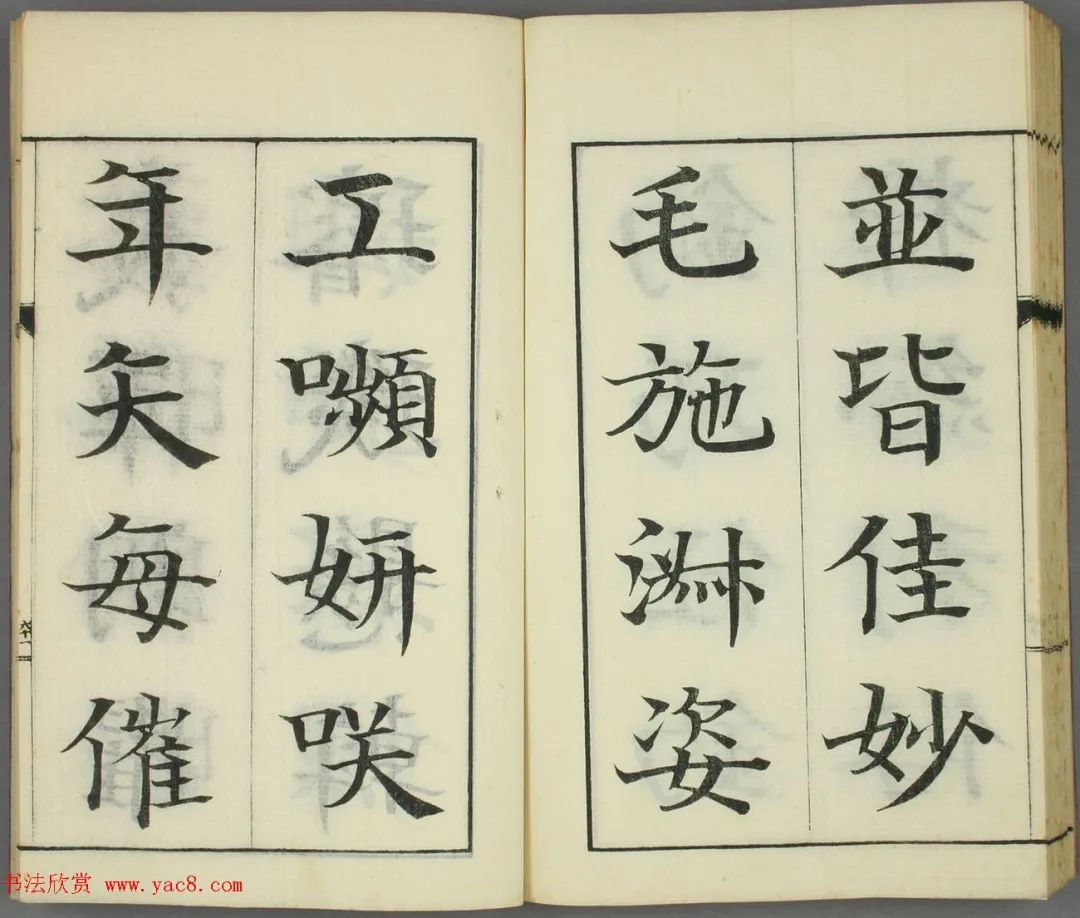 並皆佳妙
毛施淋姿
工嚬妍咲
年矢每催
六十一
书法欣赏 www.yac8.com